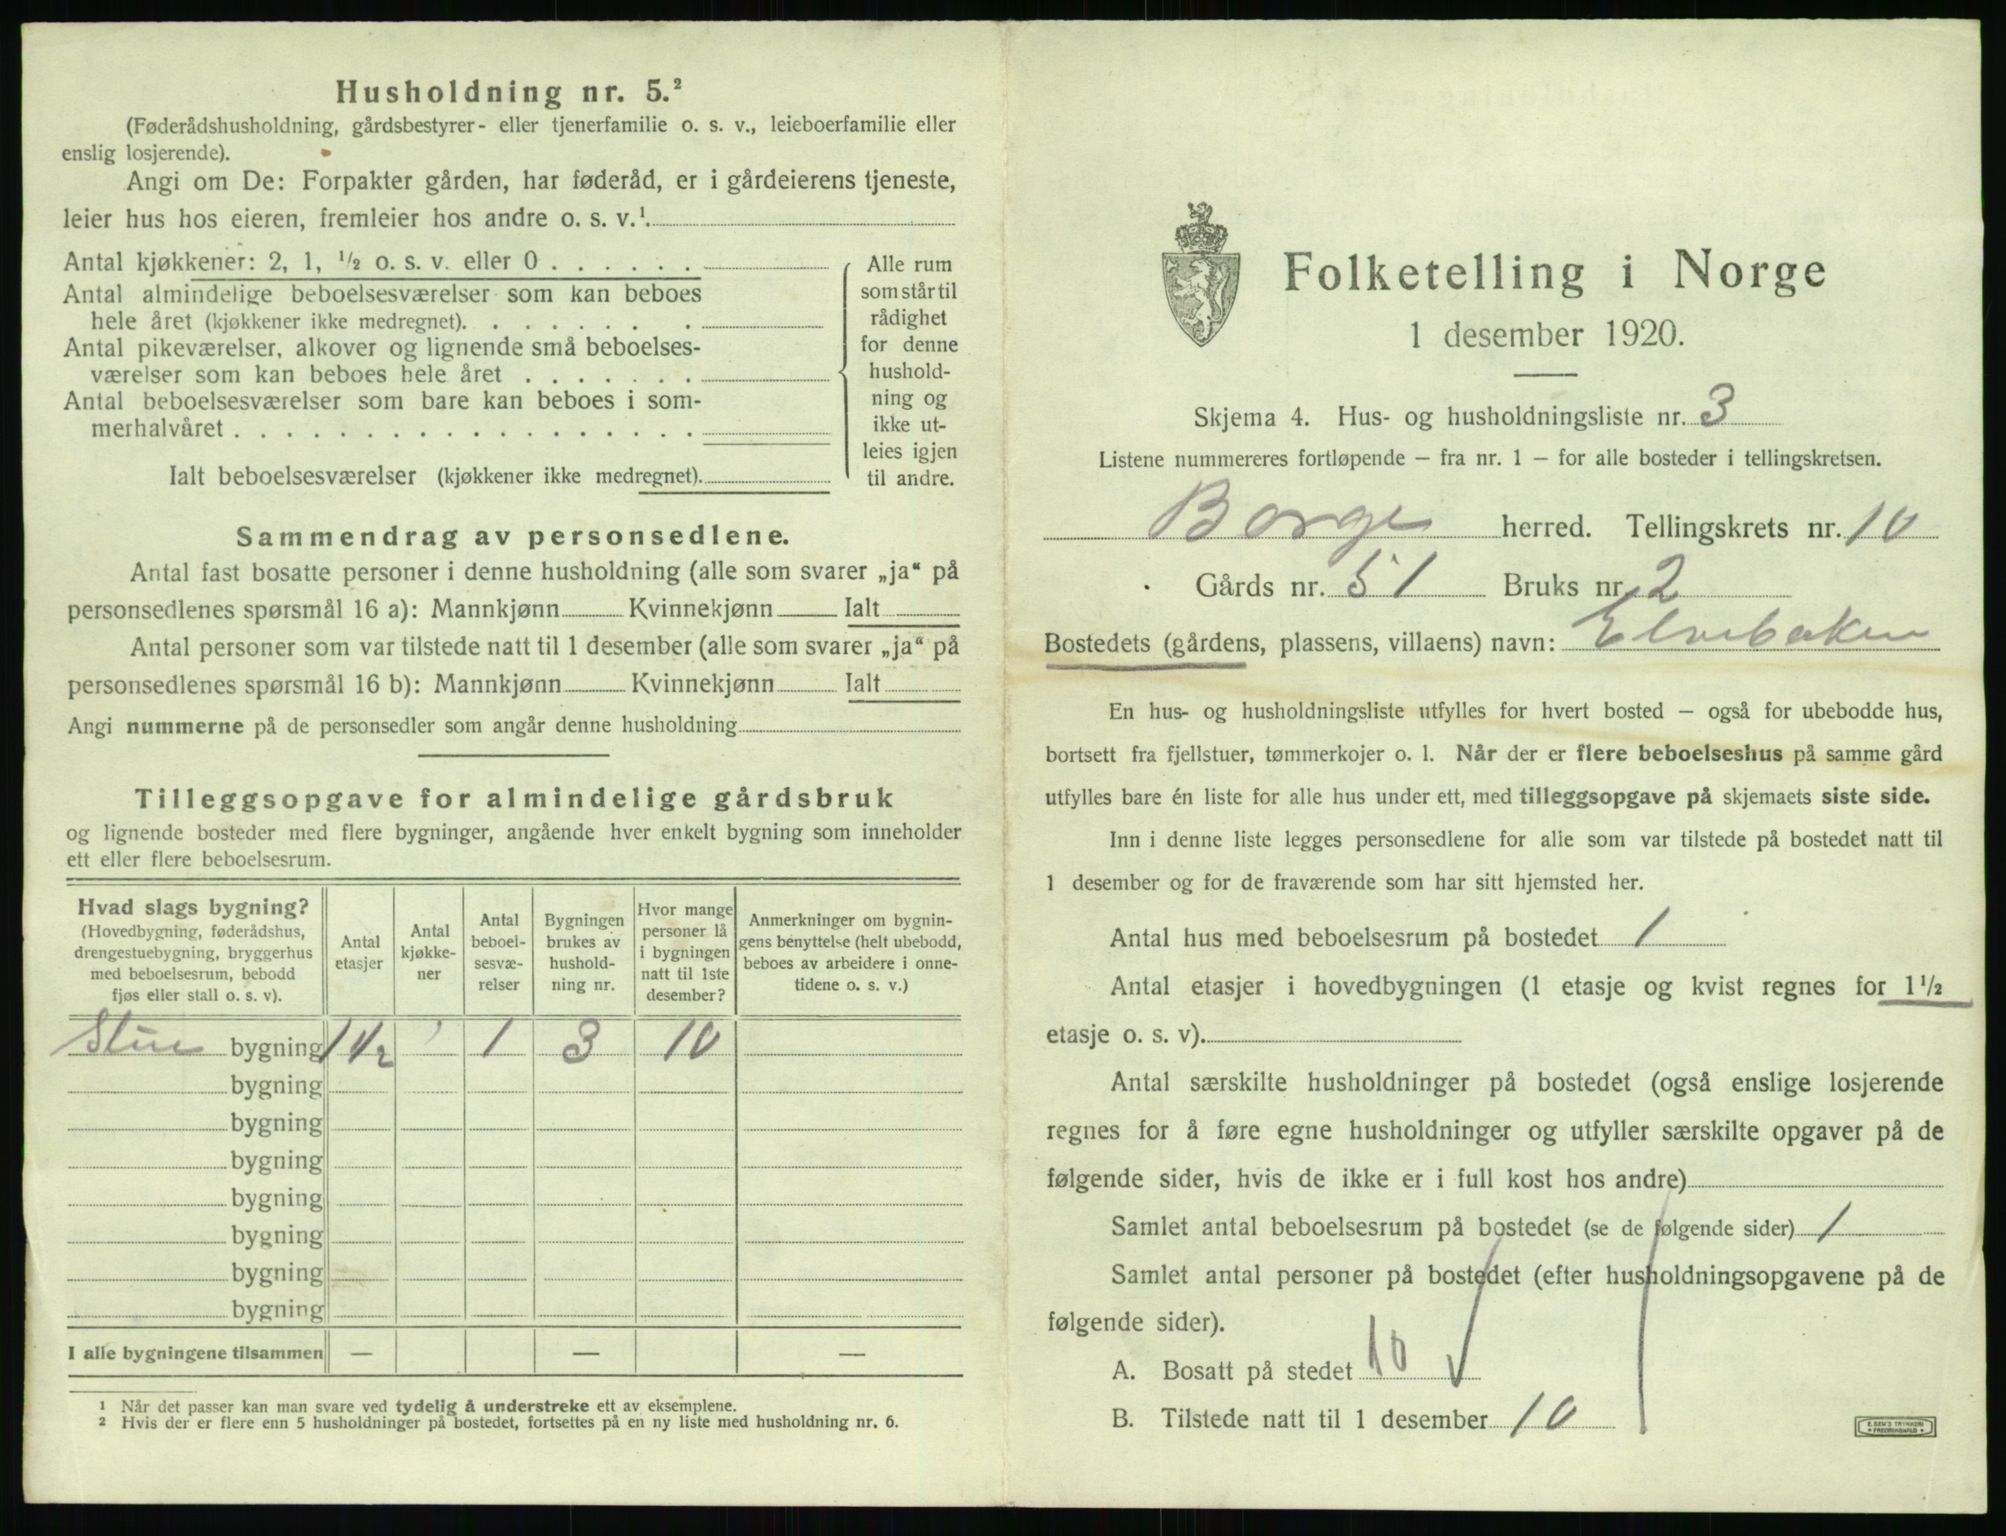 Husholdning nr. 5.²
(Føderådshusholdning, gårdsbestyrer- eller tjenerfamilie o. s. v., leieboerfamilie eller
enslig losjerende).
Angi om De: Forpakter gården, har føderåd, er i gårdeierens tjeneste,
leier hus hos eieren, fremleier hos andre o. s. v.¹
Antal kjøkkener: 2, 1, ½ o. s. v. eller 0 . . . . . .
Antal almindelige beboelsesværelser som kan beboes
hele året (kjøkkener ikke medregnet). . . . . . . .
Antal pikeværelser, alkover og lignende små beboelses-
værelser som kan beboes hele året . . . . . . .
Antal beboelsesværelser som bare kan beboes i som-
merhalvåret . . . . . . . . . . . . . . . . . .
Ialt beboelsesværelser (kjøkkener ikke medregnet).
Alle rum
som står til
rådighet
for denne
hushold-
ning og
ikke ut-
leies igjen
til andre.
Sammendrag av personsedlene.
Antal fast bosatte personer i denne husholdning (alle som svarer „ja“ på
personsedlenes spørsmål 16 a): Mannkjønn Kvinnekjønn Ialt
Antal personer som var tilstede natt til 1 desember (alle som svarer „ja“ på
personsedlenes spørsmål 16 b): Mannkjønn Kvinnekjønn Ialt
Angi nummerne på de personsedler som angår denne husholdning
Tilleggsopgave for almindelige gårdsbruk
og lignende bosteder med flere bygninger, angående hver enkelt bygning som inneholder
ett eller flere beboelsesrum.
Hvad slags bygning?
(Hovedbygning, føderådshus,
drengestuebygning, bryggerhus
med beboelsesrum, bebodd
fjøs eller stall o. s. v).
Antal
etasjer
Antal
kjøkke-
ner
Antal
beboel-
sesvæ-
relser
Bygningen
brukes av
hushold-
ning nr.
Hvor mange
personer lå
i bygningen
natt til 1ste
desember?
Anmerkninger om bygnin-
gens benyttelse (helt ubebodd,
beboes av arbeidere i onne-
tidene o. s. v.)
Stue bygning 1 1/2 1 3 10
bygning
bygning
bygning
bygning
bygning
bygning
bygning
I alle bygningene tilsammen — — —
¹ Når det passer kan man svare ved tydelig å understreke ett av eksemplene.
² Hvis der er flere enn 5 husholdninger på bostedet, fortsettes på en ny liste med husholdning nr. 6.
Folketelling i Norge
1 desember 1920.
Skjema 4. Hus- og husholdningsliste nr. 3
Listene nummereres fortløpende – fra nr. 1 – for alle bosteder i tellingskretsen.
Borge herred. Tellingskrets nr. 10
Gårds nr. 51 Bruks nr. 2
Bostedets (gårdens, plassens, villaens) navn: Elvebaken
En hus- og husholdningsliste utfylles for hvert bosted – også for ubebodde hus,
bortsett fra fjellstuer, tømmerkojer o. l. Når der er flere beboelseshus på samme gård
utfylles bare én liste for alle hus under ett, med tilleggsopgave på skjemaets siste side.
Inn i denne liste legges personsedlene for alle som var tilstede på bostedet natt til
1 desember og for de fraværende som har sitt hjemsted her.
Antal hus med beboelsesrum på bostedet 1
Antal etasjer i hovedbygningen (1 etasje og kvist regnes for 1½
etasje o. s. v).
Antal særskilte husholdninger på bostedet (også enslige losjerende
regnes for å føre egne husholdninger og utfyller særskilte opgaver på de
følgende sider, hvis de ikke er i full kost hos andre)
Samlet antal beboelsesrum på bostedet (se de følgende sider) 1
Samlet antal personer på bostedet (efter husholdningsopgavene på de
følgende sider).
A. Bosatt på stedet 10
B. Tilstede natt til 1 desember 10
E. SEM'S TRYKKERI
FREDRIKSHALD